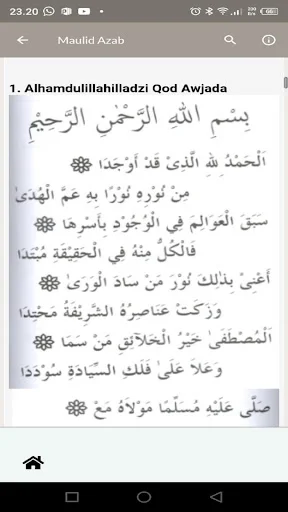 23.20
Maulid Azab
1. Alhamdulillahilladzi Qod Awjada
بِسْمِ اللهِ الرَّحْمٰنِ الرَّحِيْمِ
اَلْحَمْدُ لِلّٰهِ الَّذِىْ قَدْ أَوْجَدَا
مِنْ نُوْرِهِ نُوْرًا بِهِ عَمَّ الْهُدَىٰ
سَبَقَ الْعَوَالِمَ فِي الْوُجُوْدِ بِأَسْرِهَا
فَالْكُلُّ مِنْهُ فِي الْحَقِيْقَةِ مُبْتَدَا
أَعْنِىْ بِذٰلِكَ نُوْرَ مَنْ سَادَ الْوَرَىٰ
وَزَكَتْ عَنَاصِرُهُ الشَّرِيْفَةُ مَحْتِدَا
اَلْمُصْطَفَىٰ خَيْرُ الْخَلَائِقِ مَنْ سَمَا
وَعَلَا عَلَىٰ فَلَكِ السِّيَادَةِ سُوْدَدَا
صَلَّى عَلَيْهِ مُسَلِّمًا مَوْلَاهُ مَعْ